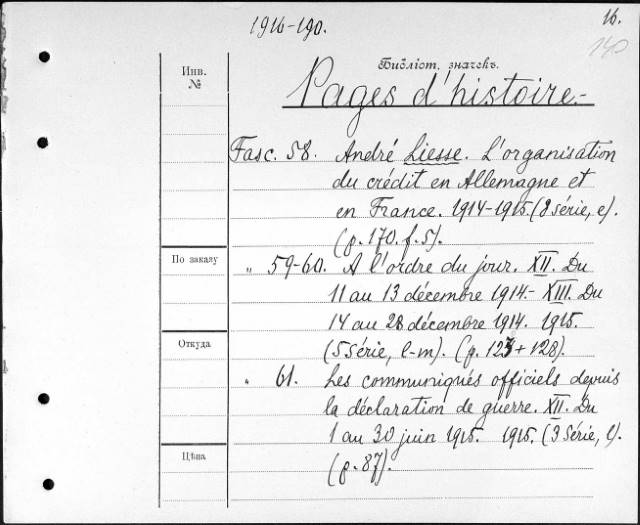 16.
1916-190.
140
Инв.
№
Библіот. значекъ.
Pages d'histoire.-
Fasc. 58. André Liesse. L'organisation
du crédit en Allemagne et
en France. 1914-1915. (8 série, e).
(p. 170. f. 5).
По заказу
" 59-60. A l'ordre du jour. XII. Du
11 au 13 décembre 1914.- XIII. Du
14 au 28 décembre 1914. 1915.
Откуда
(5 série, l-m). (p. 123 + 128).
" 61. Les communiqués officiels depuis
la déclaration de guerre. XII. Du
1 au 30 juin 1915. 1915. (3 série, l).
Цѣна
(p. 87).